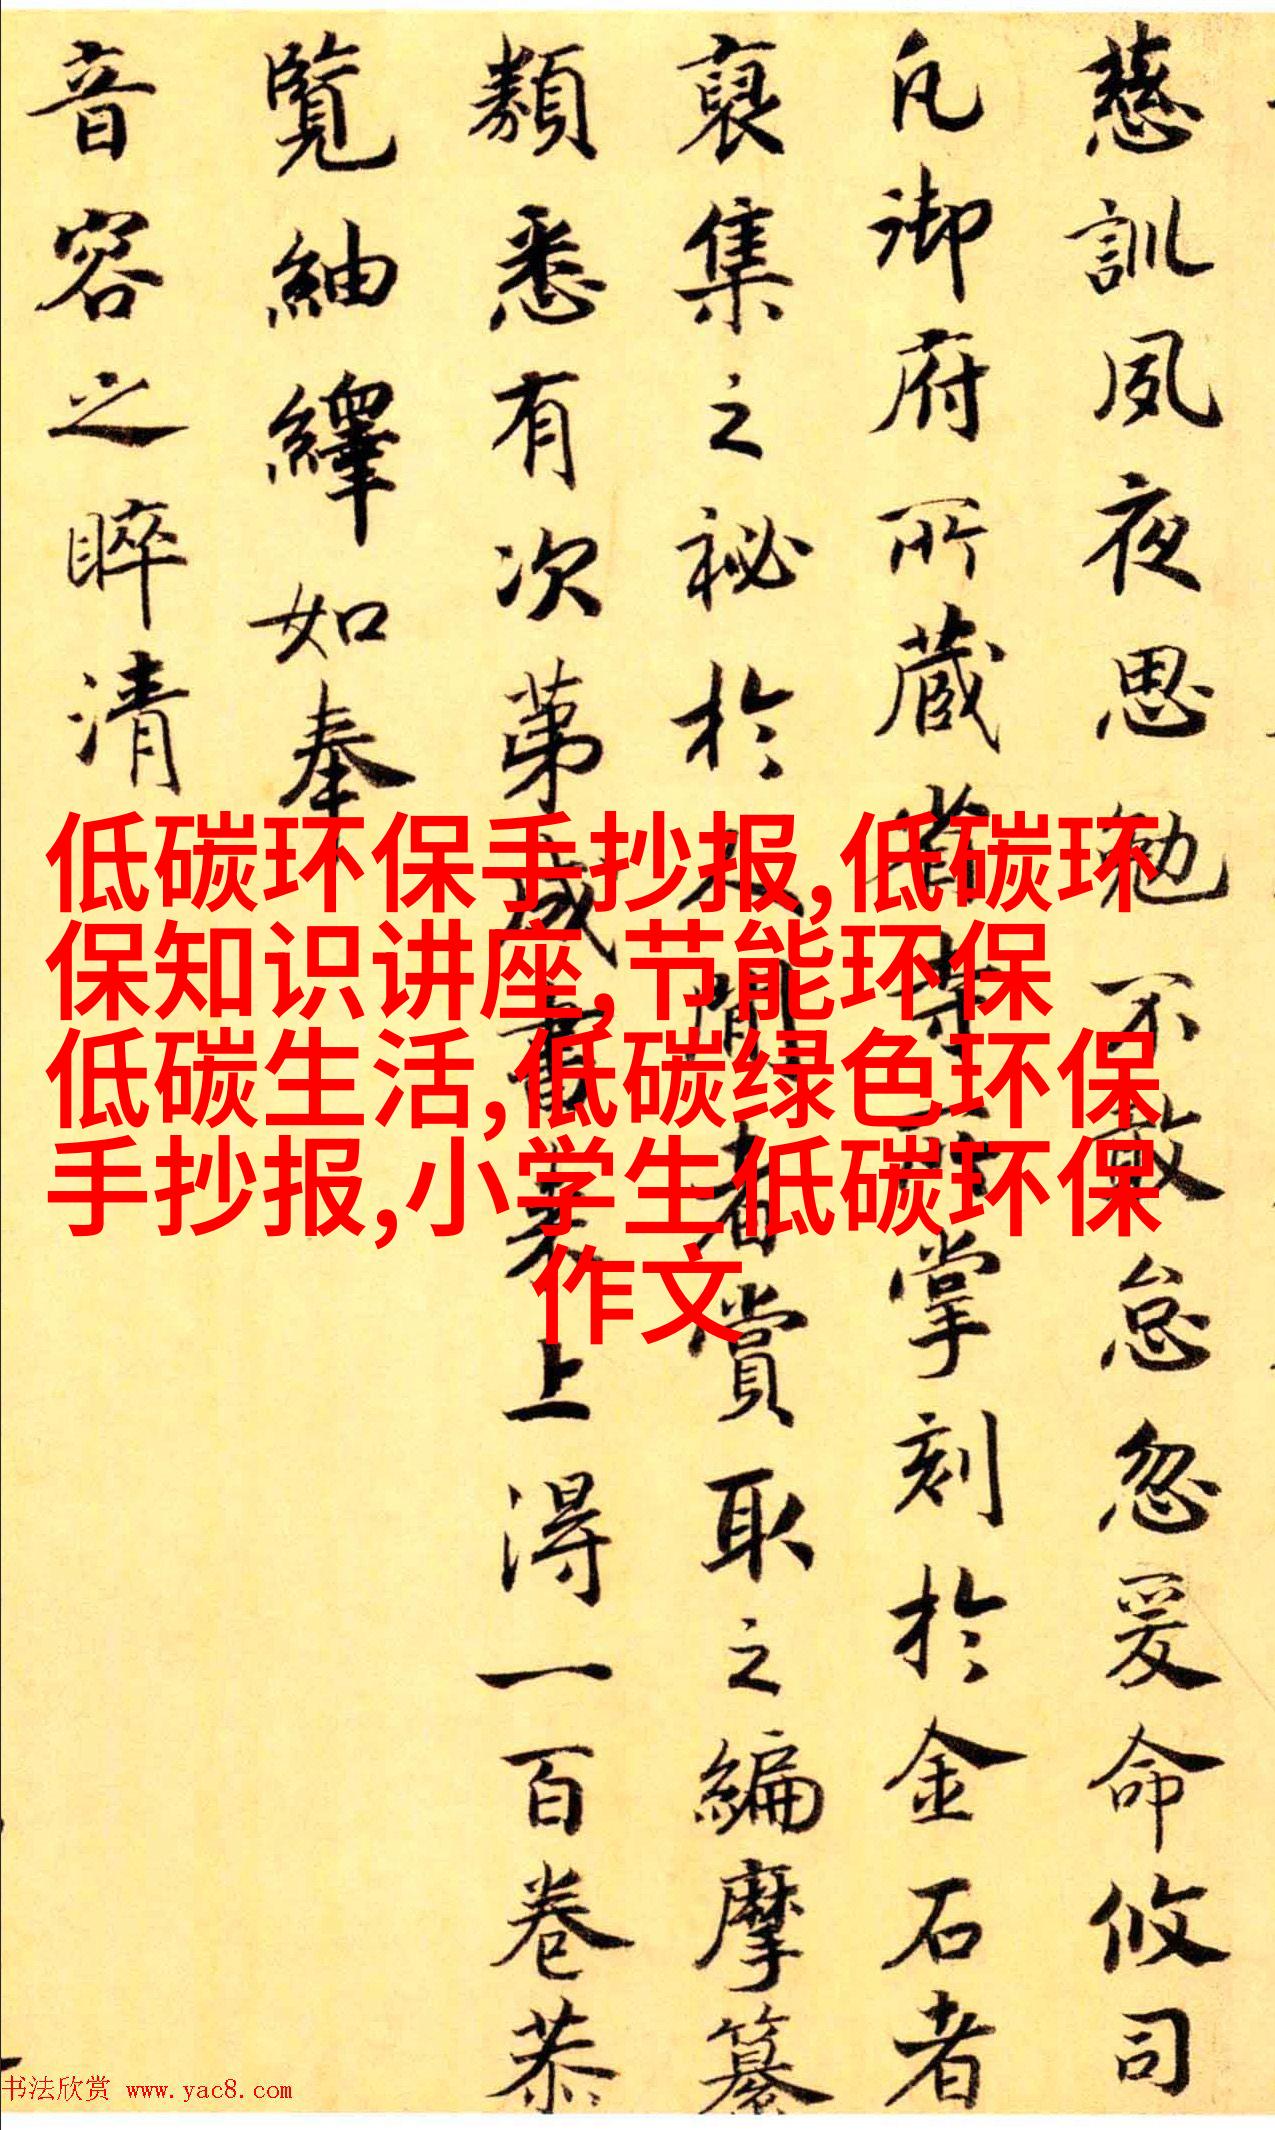 慈訓夙夜思勉不敢怠忽爰命攸司
凡御府所藏若寺所掌刻於金石者
裒集之秘於好閒者賞取之編摩纂
類悉有次第成書表上得一百卷恭
覽紬繹如奉
音容之睟清
低碳环保手抄报,低碳环
保知识讲座,节能环保
低碳生活,低碳绿色环保
手抄报,小学生低碳环保
作文
书法欣赏 www.yac8.com